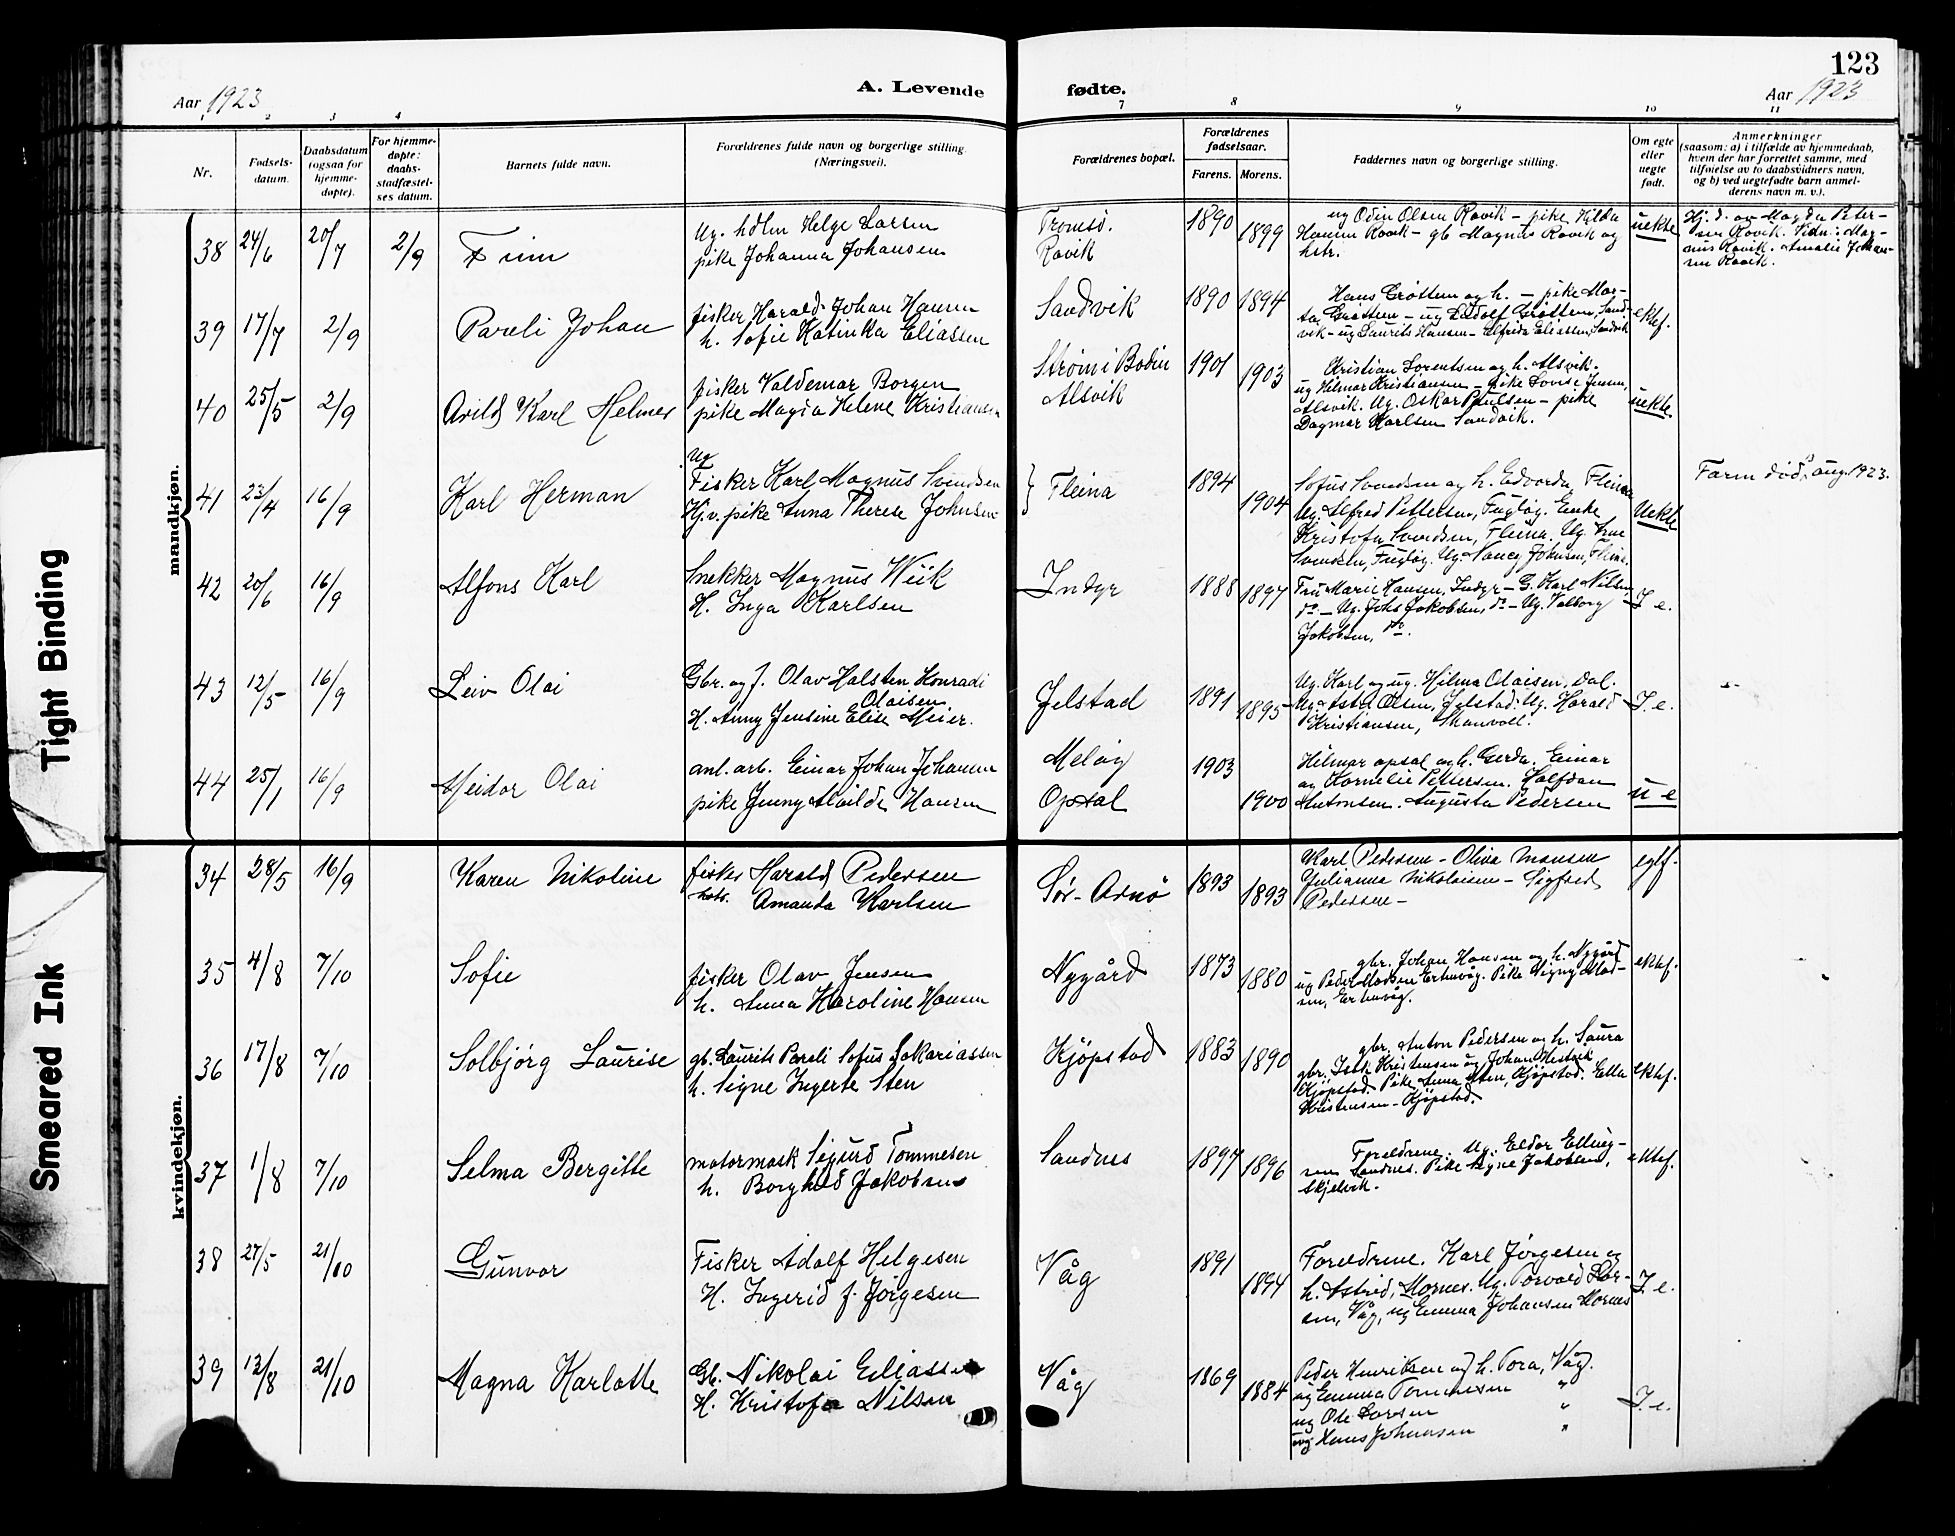 123
Aar 1923
A. Levende fødte.
Aar 1923
1 2 3 4 7 8 9 10 11
Nr.
Fødsels-
datum.
Daabsdatum
(ogsaa for
hjemme-
døpte).
For hjemme-
døpte:
daabs-
stadfæstel-
ses datum.
Barnets fulde navn.
Forældrenes fulde navn og borgerlige stilling
(Næringsvei).
Forældrenes bopæl.
Forældrenes
fødselsaar.
Farens. Morens.
Faddernes navn og borgerlige stilling.
Om egte
eller
uegte
født.
Anmerkninger
(saasom: a) i tilfælde av hjemmedaab,
hvem der har forrettet samme, med
tilføielse av to daabsvidners navn,
og b) ved uegtefødte barn anmel-
derens navn m. v.).
mandkjøn.
38 24/6 20/7 2/9 Finn
Ug. Holm Helge Larsen
pike Johanna Johansen
Tromsø.
Røvik
1890 1899
ug Odin Olsen Røvik – pike Hilda
Hansen Røvik – gb Magnus Røvik og
hstr.
uekte
Hj. d. av Magda Peter-
sen Røvik. Vidn: Mag-
nus Røvik. Amalie Johan-
sen Røvik.
39 17/7 2/9 Pareli Johan
fisker Harald Johan Hansen
h. Sofie Katinka Eliassen
Sandvik
1890 1894
Hans Grøttem og h. – pike Mar-
ta Grøttem – ug Ludolf Grøttem, Sand-
vik – ug Laurits Hansen – Elfrida Eliassen, Sandvik
ektef.
40 25/5 2/9 Arild Karl Helmer
fisker Valdemar Borgen
pike Magda Helene Kristiansen
Strøm i Bodin
Alsvik
1901 1903
Kristian Lorentsen og h. Alsvik.
ug Hilmar Kristiansen – pike Lovise Jensen,
Alsvik. Ug. Oskar Paulsen – pike
Dagmar Karlsen Sandvik.
uekte.
41 23/4 16/9 Karl Herman
Ug
Fisker Karl Magnus Svendsen
Hj.v. pike Anna Therese Johnsen
Fleina
1894 1904
Sofus Svendsen og h. Edvarda, Fleina
Ug. Alfred Pettersen, Fugløy. Enke
Kristofa Svendsen, Fleina. Ug. Arne
Svendsen, Fugløy. Ug. Nancy Johnsen, Fleina.
Uekte
Faren død i aug. 1923.
42 20/6 16/9 Alfons Karl
Snekker Magnus Wiik
H. Inga Karlsen
Indyr
1888 1897
Fru Marie Hansen, Indyr – G. Karl Nilsen
do – Ug. Johs Jakobsen, do – Ug. Valborg
Jakobsen, do.
I e.
43 12/5 16/9 Leiv Olai
Gbr. og f. Olav Halsten Konradi
Olaisen
H. Anny Jensine Elise Meier.
Jelstad
1891 1895
Ug. Karl og ug. Hilma Olaisen, Dal.
Ug. Astri Olsen, Jelstad. Ug. Harald
Kristiansen, Skauvoll.
I. e.
44 25/1 16/9 Meidor Olai
anl. arb. Einar Johan Johansen
pike Jenny Alvilde Hansen
Meløy
Opsal
1903 1900
Hilmar Opsal og h. Gerda. Einar
og Kornelie Pettersen. Halfdan
Antonsen. Augusta Pedersen
u e
kvindekjøn.
34 28/5 16/9 Karen Nikoline
fisker Harald Pedersen
hstr. Amanda Karlsen
Sør-Arnø
1893 1893
Karl Pedersen – Oliva Monsen
Julianna Nikolaisen – Sigfred
Pedersen –
egtf.
35 4/8 7/10 Sofie
fisker Olav Jensen
h. Anna Karoline Hansen
Nygård
1873 1880
gbr. Johan Hansen og h. Nygård
ug Peder Madsen Ertenvåg. Pike Signy Mad-
sen, Ertenvåg.
ektef.
36 17/8 7/10 Solbjørg Laurise
gb. Laurits Pareli Sofus Sakariassen
h. Signe Ingerte Sten
Kjøpstad
1883 1890
gbr. Anton Pedersen og h. Laura
gbr. Isak Kristensen ug Johan Hestvik
Kjøpstad. Pike Anna Sten, Kjøpstad. Ella
Kristensen – Kjøpstad.
ektef.
37 1/8 7/10 Selma Bergitte
motormask Sigurd Tommesen
h. Borghild Jakobsen
Sandnes
1897 1896
Foreldrene. Ug. Eldor Elling-
sen Sandnes. Pike Signe Jakobsen,
Skjelvik.
ektef.
38 27/5 21/10 Gunvor
Fisker Adolf Helgesen
H. Ingerid f. Jørgesen
Våg
1891 1894
Foreldrene. Karl Jørgesen og
h. Astrid, Mornes. Ug. Torvald Lar-
sen, Våg, ug Emma Johansen Mornes
I. e.
39 13/8 21/10 Magna Karlotte
Gb. Nikolai Eliassen
H. Kristofa Nilsen
Våg
1869 1884
Peder Henriksen og h. Tora, Våg.
ug Emma Tommesen "
ug Ole Larsen "
ug Hans Johansen "
I. e.
Tight Binding
Smeared Ink